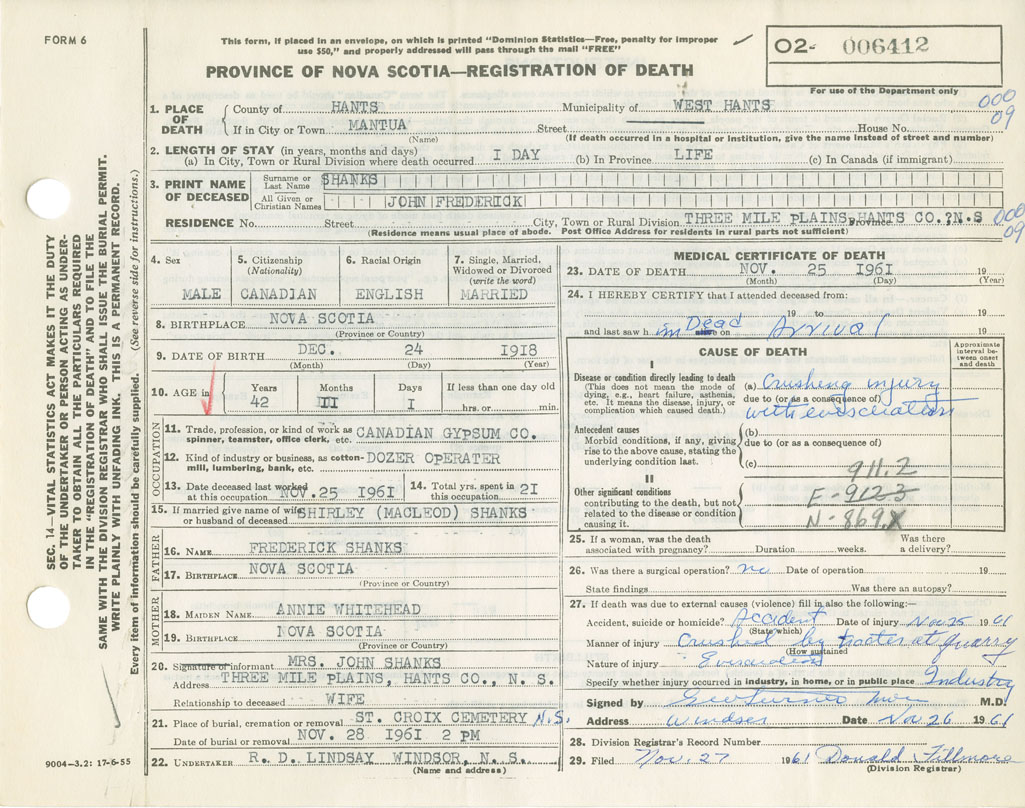 FORM 6
This form, if placed in an envelope, on which is printed "Dominion Statistics—Free, penalty for improper
use $50," and properly addressed will pass through the mail "FREE"
PROVINCE OF NOVA SCOTIA—REGISTRATION OF DEATH
02- 006412
For use of the Department only
000
09
1. PLACE OF DEATH
County of HANTS Municipality of WEST HANTS
If in City or Town MANTUA Street House No.
(Name) (If death occurred in a hospital or institution, give the name instead of street and number)
2. LENGTH OF STAY (in years, months and days)
(a) In City, Town or Rural Division where death occurred I DAY (b) In Province LIFE (c) In Canada (if immigrant)
3. PRINT NAME OF DECEASED
Surname or Last Name SHANKS
All Given or Christian Names JOHN FREDERICK
RESIDENCE No. Street City, Town or Rural Division THREE MILE PLAINS, Province HANTS CO.?N.S
000
09
(Residence means usual place of abode. Post Office Address for residents in rural parts not sufficient)
4. Sex
MALE
5. Citizenship
(Nationality)
CANADIAN
6. Racial Origin
ENGLISH
7. Single, Married,
Widowed or Divorced
(write the word)
MARRIED
8. BIRTHPLACE NOVA SCOTIA
(Province or Country)
9. DATE OF BIRTH DEC. 24 1918
(Month) (Day) (Year)
10. AGE in
Years Months Days If less than one day old
42 II I hrs. or min.
OCCUPATION
11. Trade, profession, or kind of work as
spinner, teamster, office clerk, etc. CANADIAN GYPSUM CO.
12. Kind of industry or business, as cotton-
mill, lumbering, bank, etc. DOZER OPERATER
13. Date deceased last worked
at this occupation NOV.25 1961
14. Total yrs. spent in
this occupation 2I
15. If married give name of wife
or husband of deceased SHIRLEY (MACLEOD) SHANKS
FATHER
16. NAME FREDERICK SHANKS
17. BIRTHPLACE NOVA SCOTIA
(Province or Country)
MOTHER
18. MAIDEN NAME ANNIE WHITEHEAD
19. BIRTHPLACE NOVA SCOTIA
(Province or Country)
20. Signature of informant MRS. JOHN SHANKS
Address THREE MILE PLAINS, HANTS CO., N. S.
Relationship to deceased WIFE
21. Place of burial, cremation or removal ST. CROIX CEMETERY N.S.
Date of burial or removal NOV. 28 1961 2 PM
22. UNDERTAKER R. D. LINDSAY WINDSOR, N. S.
(Name and address)
MEDICAL CERTIFICATE OF DEATH
23. DATE OF DEATH NOV. 25 1961 19
(Month) (Day) (Year)
24. I HEREBY CERTIFY that I attended deceased from:
19 to 19
and last saw h im Dead on Arrival 19
CAUSE OF DEATH
Approximate
interval be-
tween onset
and death
I
Disease or condition directly leading to death
(This does not mean the mode of
dying, e.g., heart failure, asthenia,
etc. It means the disease, injury, or
complication which caused death.)
(a) Crushing injury
due to (or as a consequence of)
with evisceration
Antecedent causes
Morbid conditions, if any, giving
rise to the above cause, stating the
underlying condition last.
(b)
due to (or as a consequence of)
(c)
911.2
II
Other significant conditions
contributing to the death, but not
related to the disease or condition
causing it.
E-9123
N-869.X
25. If a woman, was the death
associated with pregnancy? Duration weeks.
Was there
a delivery?
26. Was there a surgical operation? no Date of operation 19
State findings Was there an autopsy?
27. If death was due to external causes (violence) fill in also the following:—
Accident, suicide or homicide? Accident Date of injury Nov 25 1961
(State which)
Manner of injury Crushed by tracter at quarry
(How sustained
Nature of injury
Specify whether injury occurred in industry, in home, or in public place Industry
Signed by M.D.
Address Windsor Date Nov 26 1961
28. Division Registrar's Record Number
29. Filed Nov. 27 1961 Donald Fillmore
(Division Registrar)
SEC. 14—VITAL STATISTICS ACT MAKES IT THE DUTY
OF THE UNDERTAKER OR PERSON ACTING AS UNDER-
TAKER TO OBTAIN ALL THE PARTICULARS REQUIRED
IN THE "REGISTRATION OF DEATH" AND TO FILE THE
SAME WITH THE DIVISION REGISTRAR WHO SHALL ISSUE THE BURIAL PERMIT.
WRITE PLAINLY WITH UNFADING INK. THIS IS A PERMANENT RECORD.
Every item of information should be carefully supplied. (See reverse side for instructions.)
9004-3.2: 17-6-55